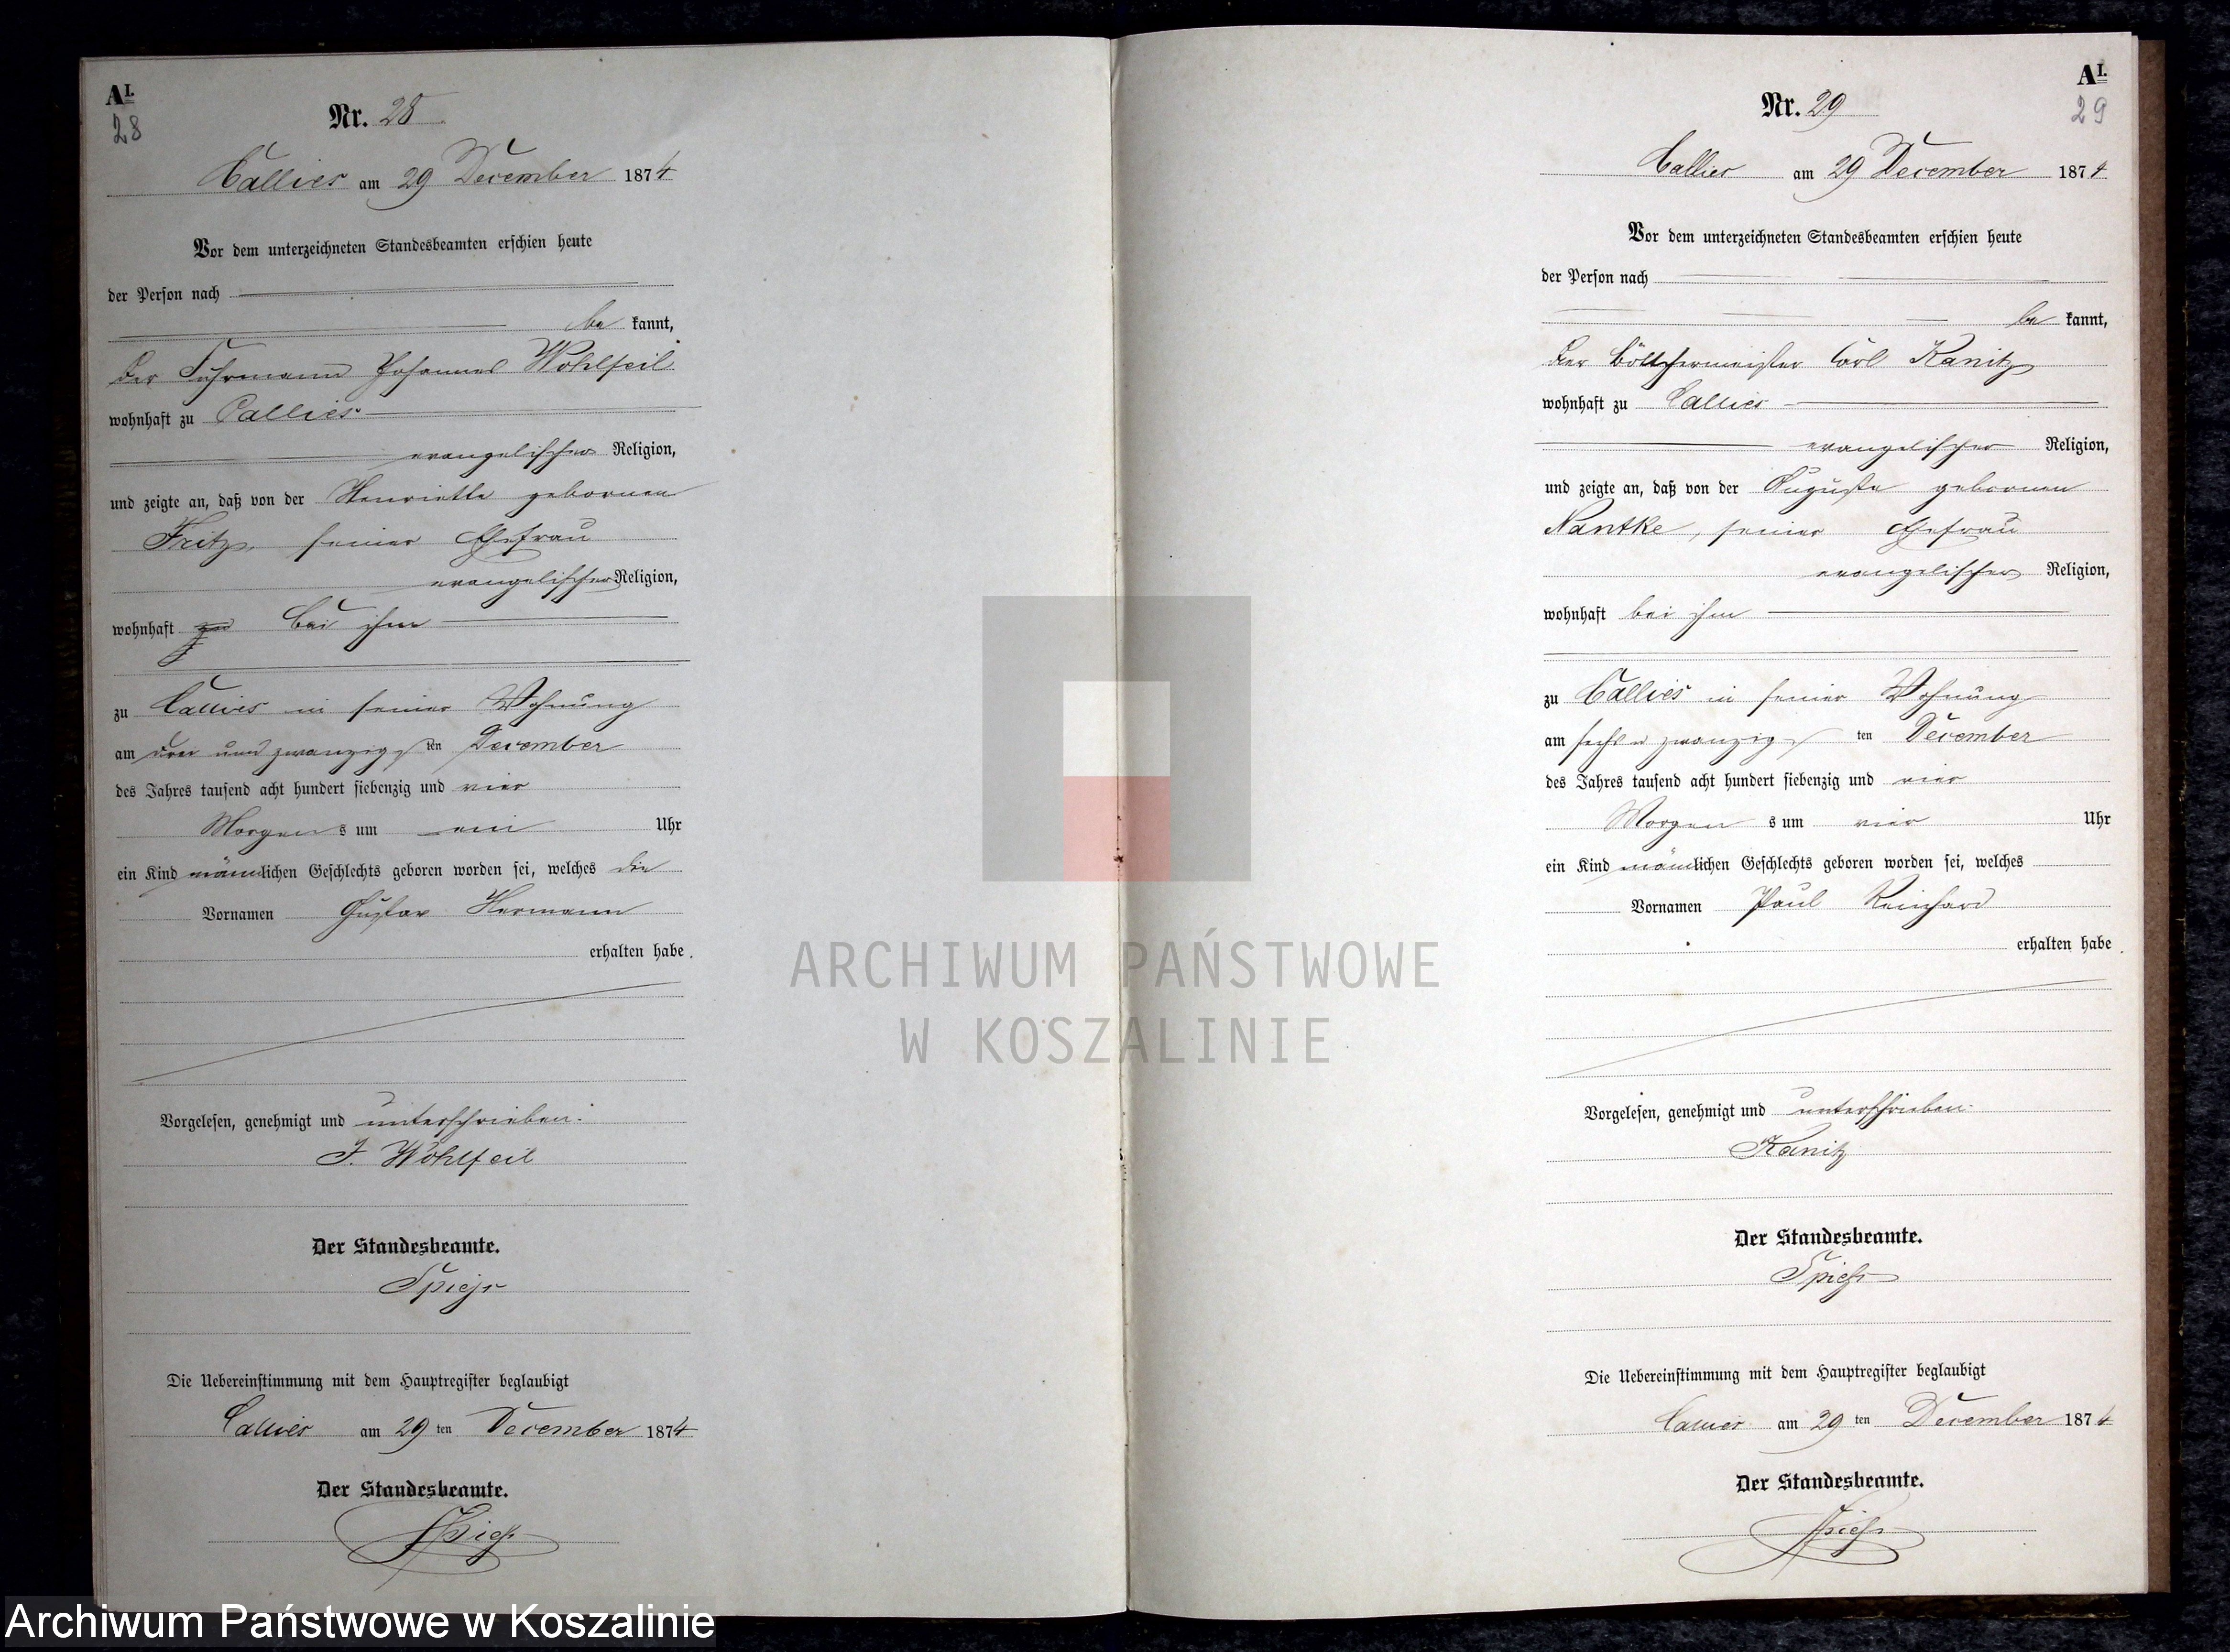 AI.
28
Nr. 28
Callies am 29 December 1874
Vor dem unterzeichneten Standesbeamten erschien heute
der Person nach
be kannt,
der Fuhrmann Johannes Wohlfeil
wohnhaft zu Callies
evangelischer Religion,
und zeigte an, daß von der Henriette gebornen
Fritz, seiner Ehefrau
evangelischer Religion,
wohnhaft zu bei ihm
zu Callies in seiner Wohnung
am drei und zwanzigsten December
des Jahres tausend acht hundert siebenzig und vier
Morgens um ein Uhr
ein Kind männlichen Geschlechts geboren worden sei, welches die
Vornamen Gustav Hermann
erhalten habe.
Vorgelesen, genehmigt und unterschrieben.
J. Wohlfeil
Der Standesbeamte.
Spiess
Die Uebereinstimmung mit dem Hauptregister beglaubigt
Callies am 29 ten December 1874
Der Standesbeamte.
Spiess
AI.
29
Nr. 29
Callies am 29 December 1874
Vor dem unterzeichneten Standesbeamten erschien heute
der Person nach
be kannt,
der Böttchermeister Carl Kanitz
wohnhaft zu Callies
evangelischer Religion,
und zeigte an, daß von der Auguste gebornen
Nantke, seiner Ehefrau
evangelischer Religion,
wohnhaft bei ihm
zu Callies in seiner Wohnung
am sechs u zwanzigs ten December
des Jahres tausend acht hundert siebenzig und vier
Morgens um vier Uhr
ein Kind männlichen Geschlechts geboren worden sei, welches
Vornamen Paul Reinhard
erhalten habe.
Vorgelesen, genehmigt und unterschrieben.
Kanitz
Der Standesbeamte.
Spiess
Die Uebereinstimmung mit dem Hauptregister beglaubigt
Callies am 29 ten December 1874
Der Standesbeamte.
Spiess
ARCHIWUM PAŃSTWOWE
W KOSZALINIE
Archiwum Państwowe w Koszalinie